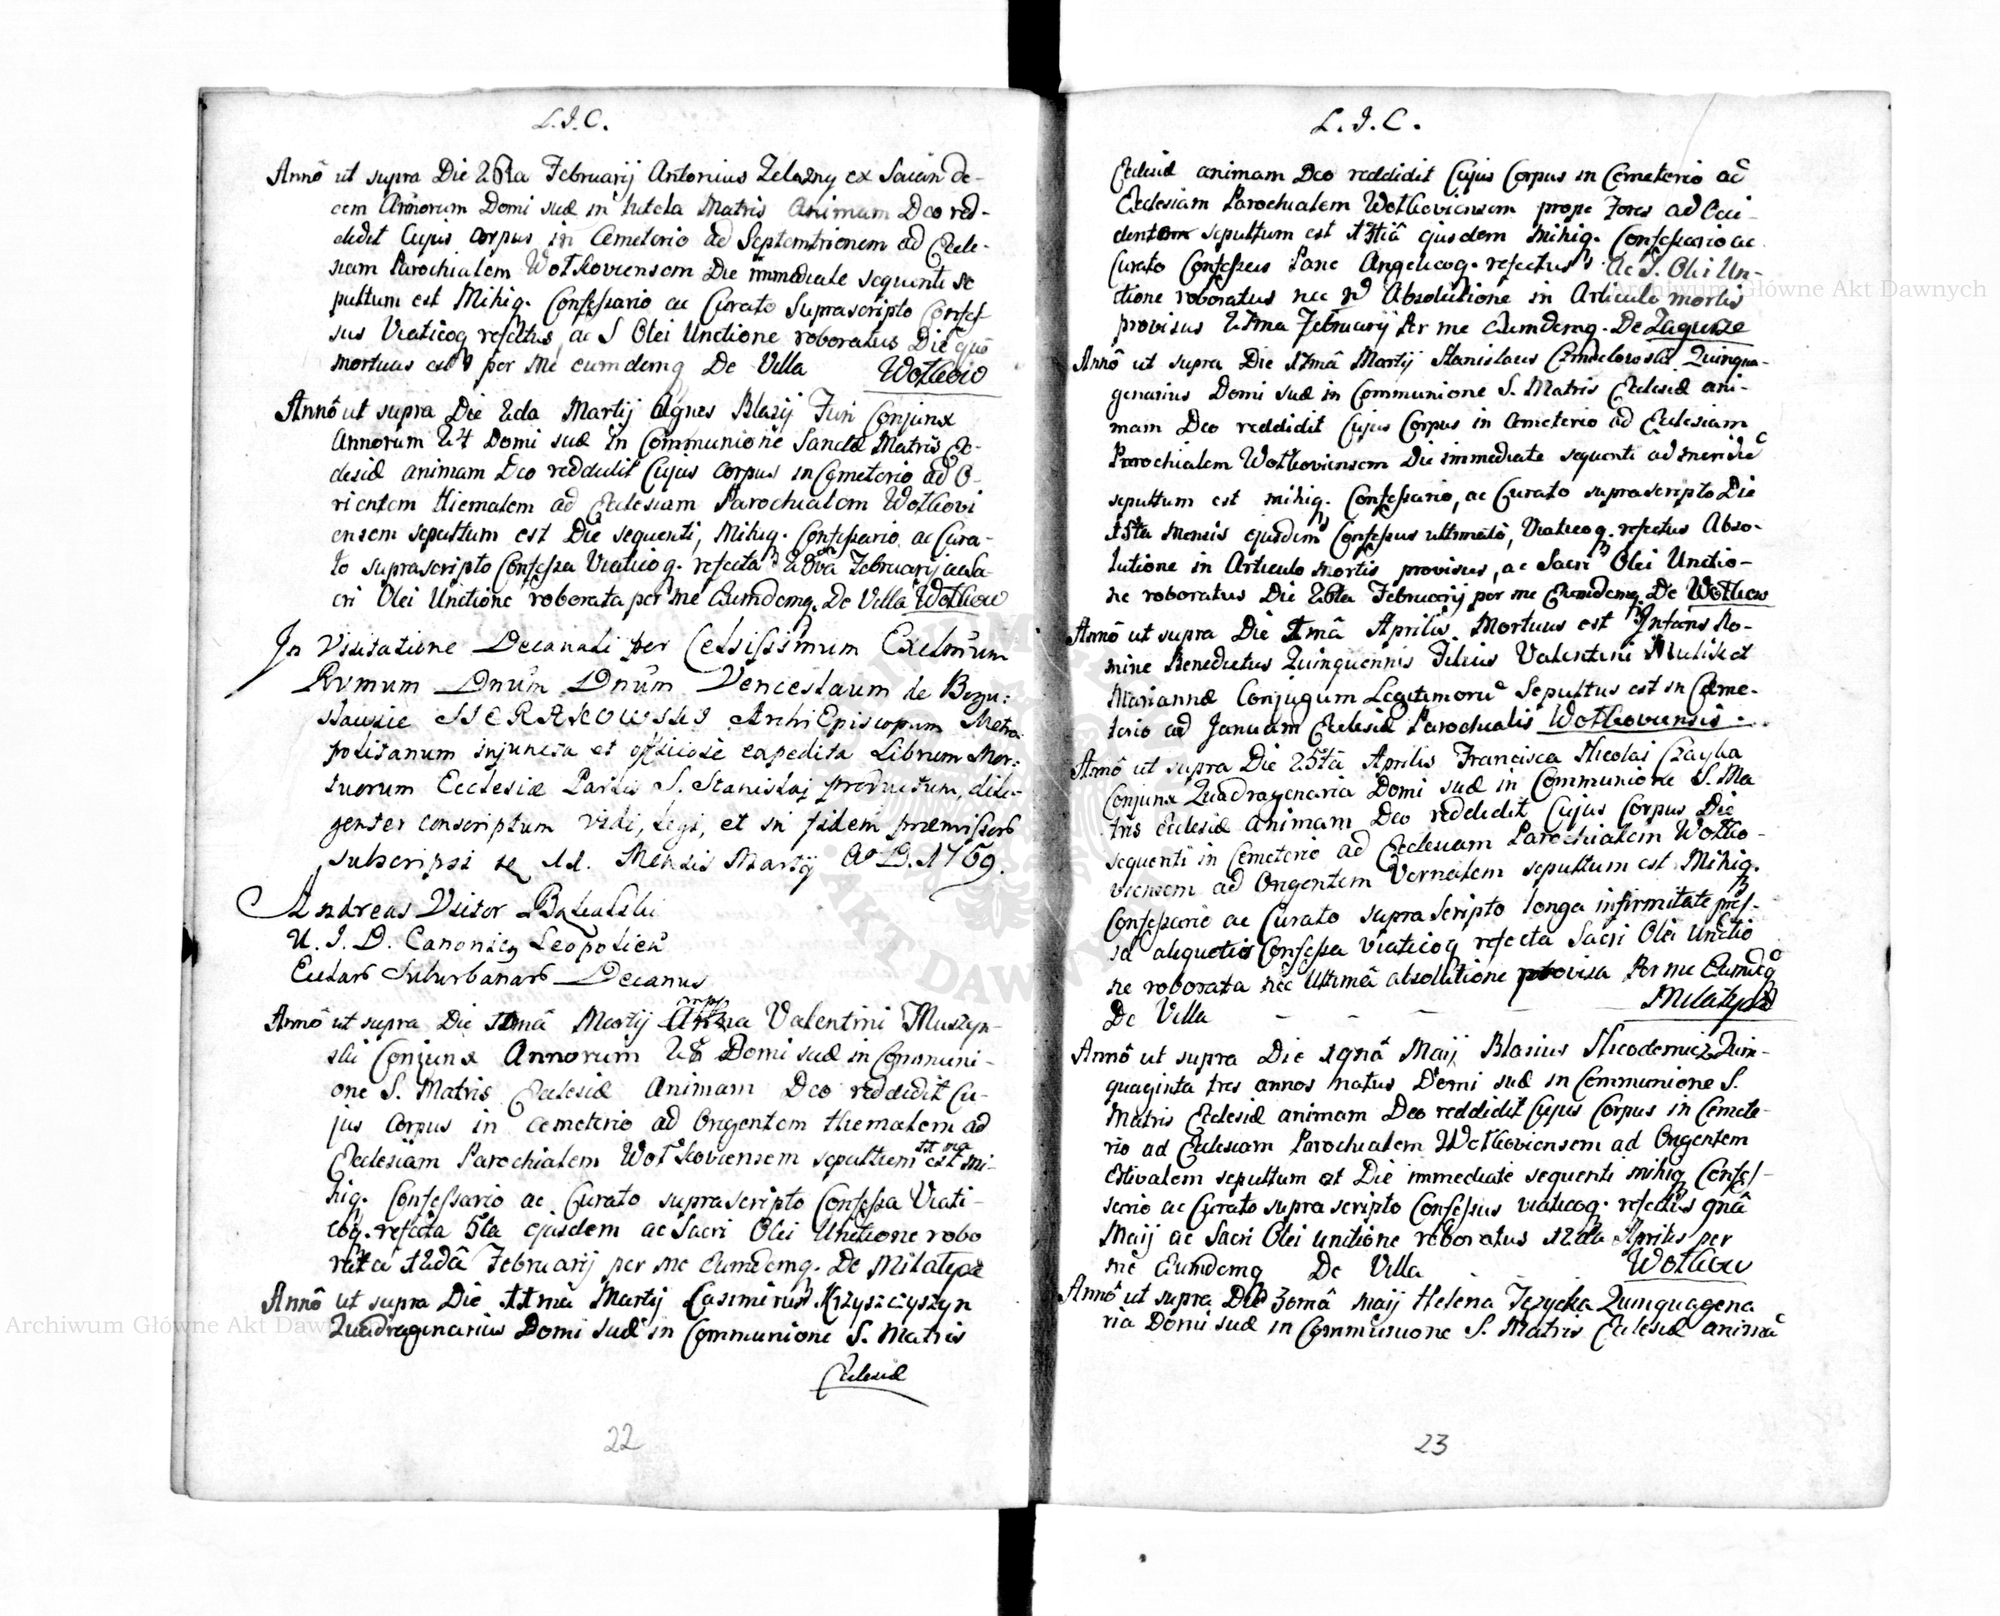 L.J.C.
Annô ut supra Die 26ta Februarij Antonius Zelazny ex Saian de-
cem Annorum Domi suæ in tutela Matris Animam Deo red-
didit Cujus corpus in Cemeterio ad Septemtrionem ad Eccle-
siam Parochialem Wołkoviensem Die immediate sequenti se
pultum est Mihiq. Confessario ac Curato Suprascripto Confes
sus Viaticoq refectus, ac S Olei Unctione roboratus Die quô
mortuus est per me eumdemq De Villa Wołkow
Annô ut supra Die 2da Martij Agnes Blasij Furi Conjunx
Annorum 24 Domi suæ in Communione Sanctæ Matris Ec-
clesiæ animam Deo reddidit Cujus corpus in Cemeterio ad O-
rientem Hiemalem ad Ecclesiam Parochialem Wołkovi
ensem sepultum est Die sequenti, Mihiq. Confessario ac Cura-
to suprascripto Confessa Viaticoq. refecta Februarij ac Sa-
cri Olei Unctione roborata per me Eumdemq. De Villa Wołkow
In Visitatione Decanali per Celsissimum Excelmum
Rvmum Dnum Dnum Venceslaum de Bogu:
sławice SIERAKOWSKI ArchiEpiscopum Metro
politanum injuncta et officiose expedita Librum Mor:
tuorum Ecclesiæ Parlis S. Stanislai productum, dili-
genter conscriptum vidi, legi, et in fidem præmissor
subscripsi se 11. Mensis Martij Ao D. 1769.
Andreas Victor
U. I. D. Canonicq Leopolien
Eccliar Suburbanar Decanus
Annô ut supra Die Martij Anna Valentini Muszyn-
ski Conjunx Annorum 28 Domi suæ in Communi-
one S. Matris Ecclesiæ Animam Deo reddidit Cu-
jus corpus in cemeterio ad Origentem Hiemalem ad
Ecclesiam Parochialem Wołkoviensem sepultum est 11ma mi-
hiq. Confessario ac Curato suprascripto Confessa Viati-
coq. refecta 5ta ejusdem ac Sacri Olei Unctione robo
rata 12dâ Februarij per me eumdemq. De Milatycze
Annô ut supra Die Martij Casimirus Krzyszczyszyn
Quadragenarius Domi suæ in Communione S. Matris
Ecclesiæ
22
L.J.C.
Ecclesiæ animam Deo reddidit Cujus Corpus in Cemeterio ad
Ecclesiam Parochialem Wołkoviensem prope Fores ad Occi-
dentem sepultum est 13tiâ ejusdem mihiq. Confessario ac
Curato Confessus Pane Angelicoq. refectus ac S. Olei Un-
ctione roboratus nec Absolutione in Articulo mortis
provisus Februarij Per me Eumdemq. De Zagurze
Annô ut supra Die 17mâ Martij Stanislaus Quinqua-
genarius Domi suæ in Communione S. Matris Ecclesiæ ani-
mam Deo reddidit Cujus Corpus in Cemeterio ad Ecclesiam
Parochialem Wołkoviensem Die immediate sequenti ad meridie
sepultum est mihiq. Confessario, ac Curato suprascripto Die
15ta mensis ejusdem Confessus ultimatô, Viaticoq. refectus Abso-
lutione in Articulo mortis provisus, ac Sacri Olei Unctio-
ne roboratus Die 26ta Februarij per me Eumdemq De Wołkow
Annô ut supra Die Aprilis Mortuus est Infans No-
mine Benedictus Quinquennis Filius Valentini Mulik et
Mariannæ Conjugum Legitimoru Sepultus est in Ceme-
terio ad Januam Ecclesiæ Parochialis Wołkoviensis.
Annô ut supra Die 25tâ Aprilis Francisca Nicolai Czayka
Conjunx Quadragenaria Domi suæ in Communione S. Ma
tris Ecclesiæ animam Deo reddidit Cujus Corpus Die
sequenti in Cemeterio ad Ecclesiam Parochialem Wołko-
viensem ad Origentem Vernalem sepultum est Mihiq.
Confessario ac Curato supra Scripto longa infirmitate pres-
sa aliquoties Confessa viaticoq refecta Sacri Olei Unctio
ne roborata nec Ultimâ absolutione provisa Per me Eumdeq
De Villa - - - - Milatycze
Annô ut supra Die Maij Blasius Nicodemicz Quin-
quaginta tres annos natus Domi suæ in Communione S.
Matris Ecclesiæ animam Deo reddidit Cujus Corpus in Cemete-
rio ad Ecclesiam Parochialem Wołkoviensem ad Origentem
Estivalem sepultum est Die immediate sequenti mihiq Confes-
sario ac Curato supra scripto Confessus viaticoq. refectus
Maij ac Sacri Olei Unctione roboratus 12da Aprilis per
me Eumdemq De Villa - - Wołkow
Annô ut supra Die 30mâ Maij Helena Języcka Quinquagena
ria Domi suæ in Communione S. Matris Ecclesiæ anima
23
Archiwum Główne Akt Dawnych
Archiwum Główne Akt Dawnych
ARCHIWUM GŁÓWNE AKT DAWNYCH